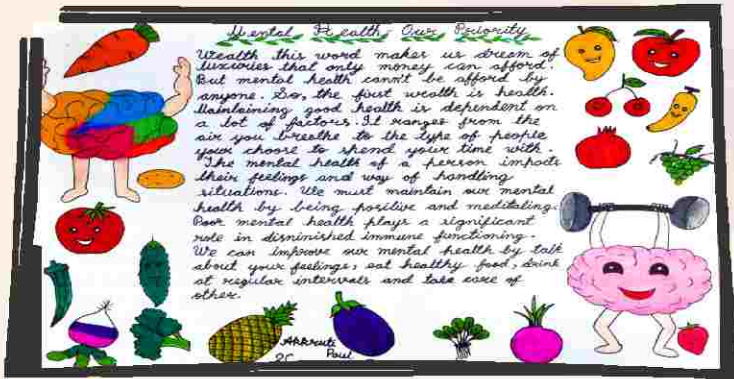 Mental Health, Our Priority
Wealth this word makes us dream of
luxuries that only money can afford.
But mental health cann't be afford by
anyone. So, the first wealth is health.
Maintaining good health is dependent on
a lot of factors. It ranges from the
air you breathe to the type of people
your choose to spend your time with.
The mental health of a person impacts
their feelings and way of handling
situations. We must maintain our mental
health by being positive and meditating.
Poor mental health plays a significant
role in disminished immune functioning.
We can improve our mental health by talk
about your feelings, eat healthy food, drink
at regular intervals and take care of
other.
Paul